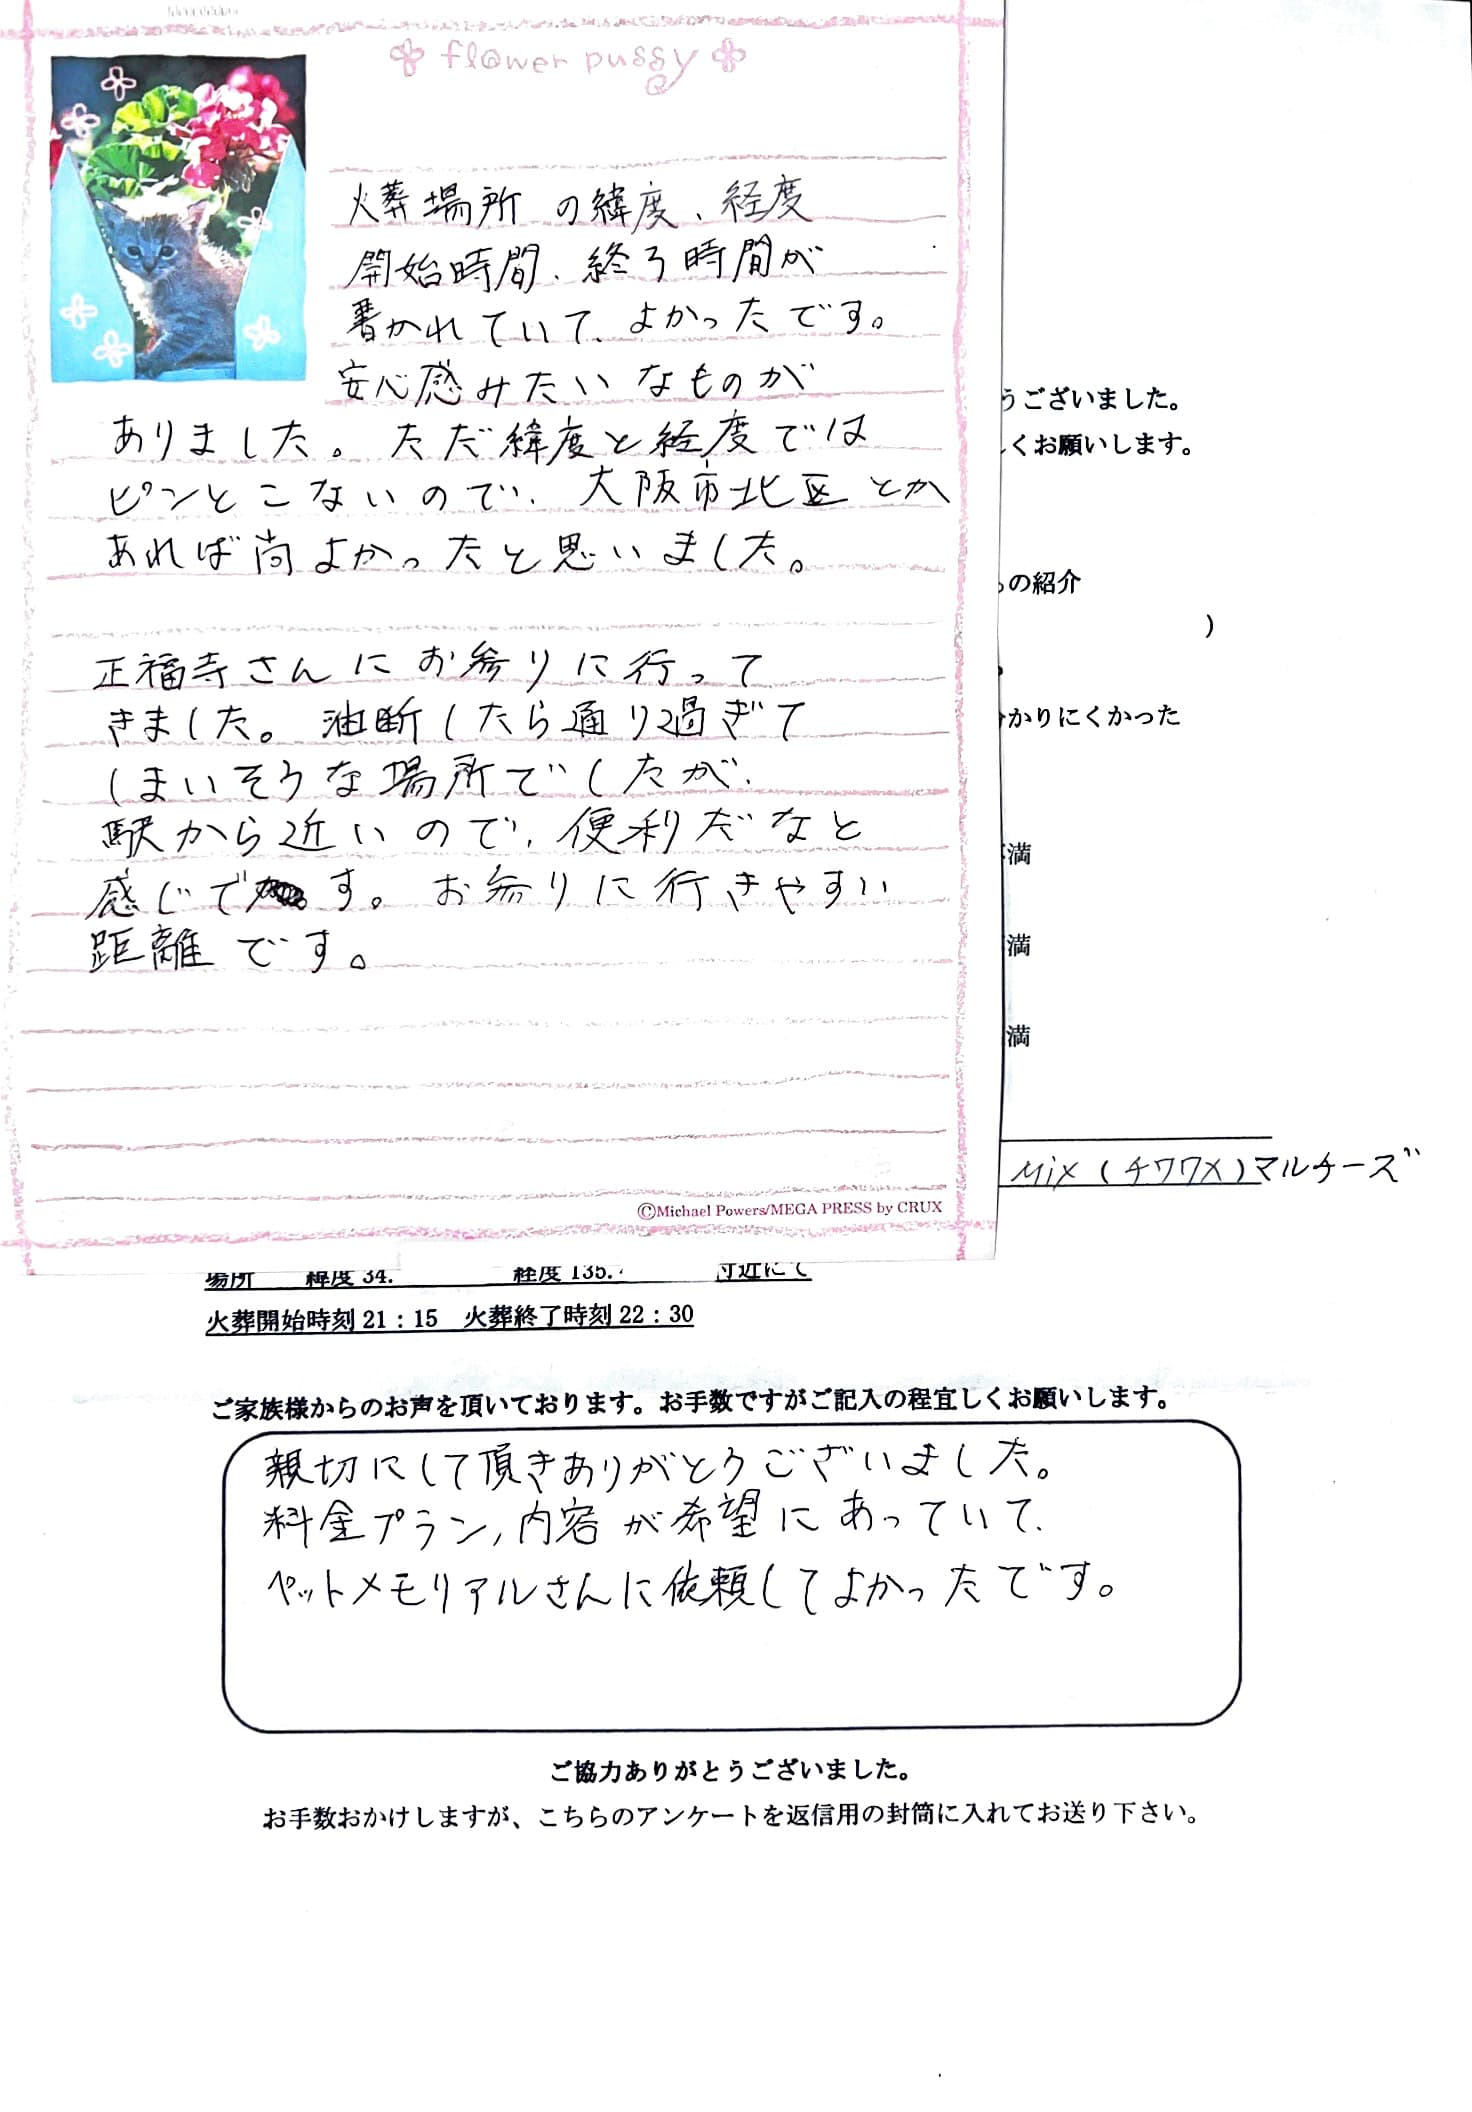 flower pussy
火葬場所の緯度、経度
開始時間、終了時間が
書かれていて、よかったです。
安心感みたいなものが
ありました。ただ緯度と経度では
ピンとこないので、大阪市北区とか
あれば尚よかったと思いました。
正福寺さんにお参りに行って
きました。油断したら通り過ぎて
しまいそうな場所でしたが、
駅から近いので、便利だなと
感じです。お参りに行きやすい
距離です。
©Michael Powers/MEGA PRESS by CRUX
うございました。
くお願いします。
の紹介
)
かりにくかった
満
満
満
Mix (チワワ×)マルチーズ
場所 緯度 34. 経度 135. 付近にて
火葬開始時刻 21:15 火葬終了時刻 22:30
ご家族様からのお声を頂いております。お手数ですがご記入の程宜しくお願いします。
親切にして頂きありがとうございました。
料金プラン,内容が希望にあっていて、
ペットメモリアルさんに依頼してよかったです。
ご協力ありがとうございました。
お手数おかけしますが、こちらのアンケートを返信用の封筒に入れてお送り下さい。